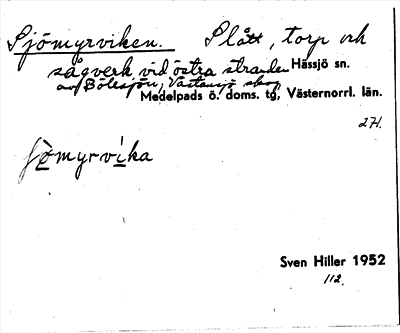 Sjömyrviken. Slått, torp och
sågverk vid östra stranden Hässjö sn.
av Bölesjön, Västansjö skog
Medelpads ö. doms. tg, Västernorrl. län.
271.
sömyrvika
Sven Hiller 1952
112.